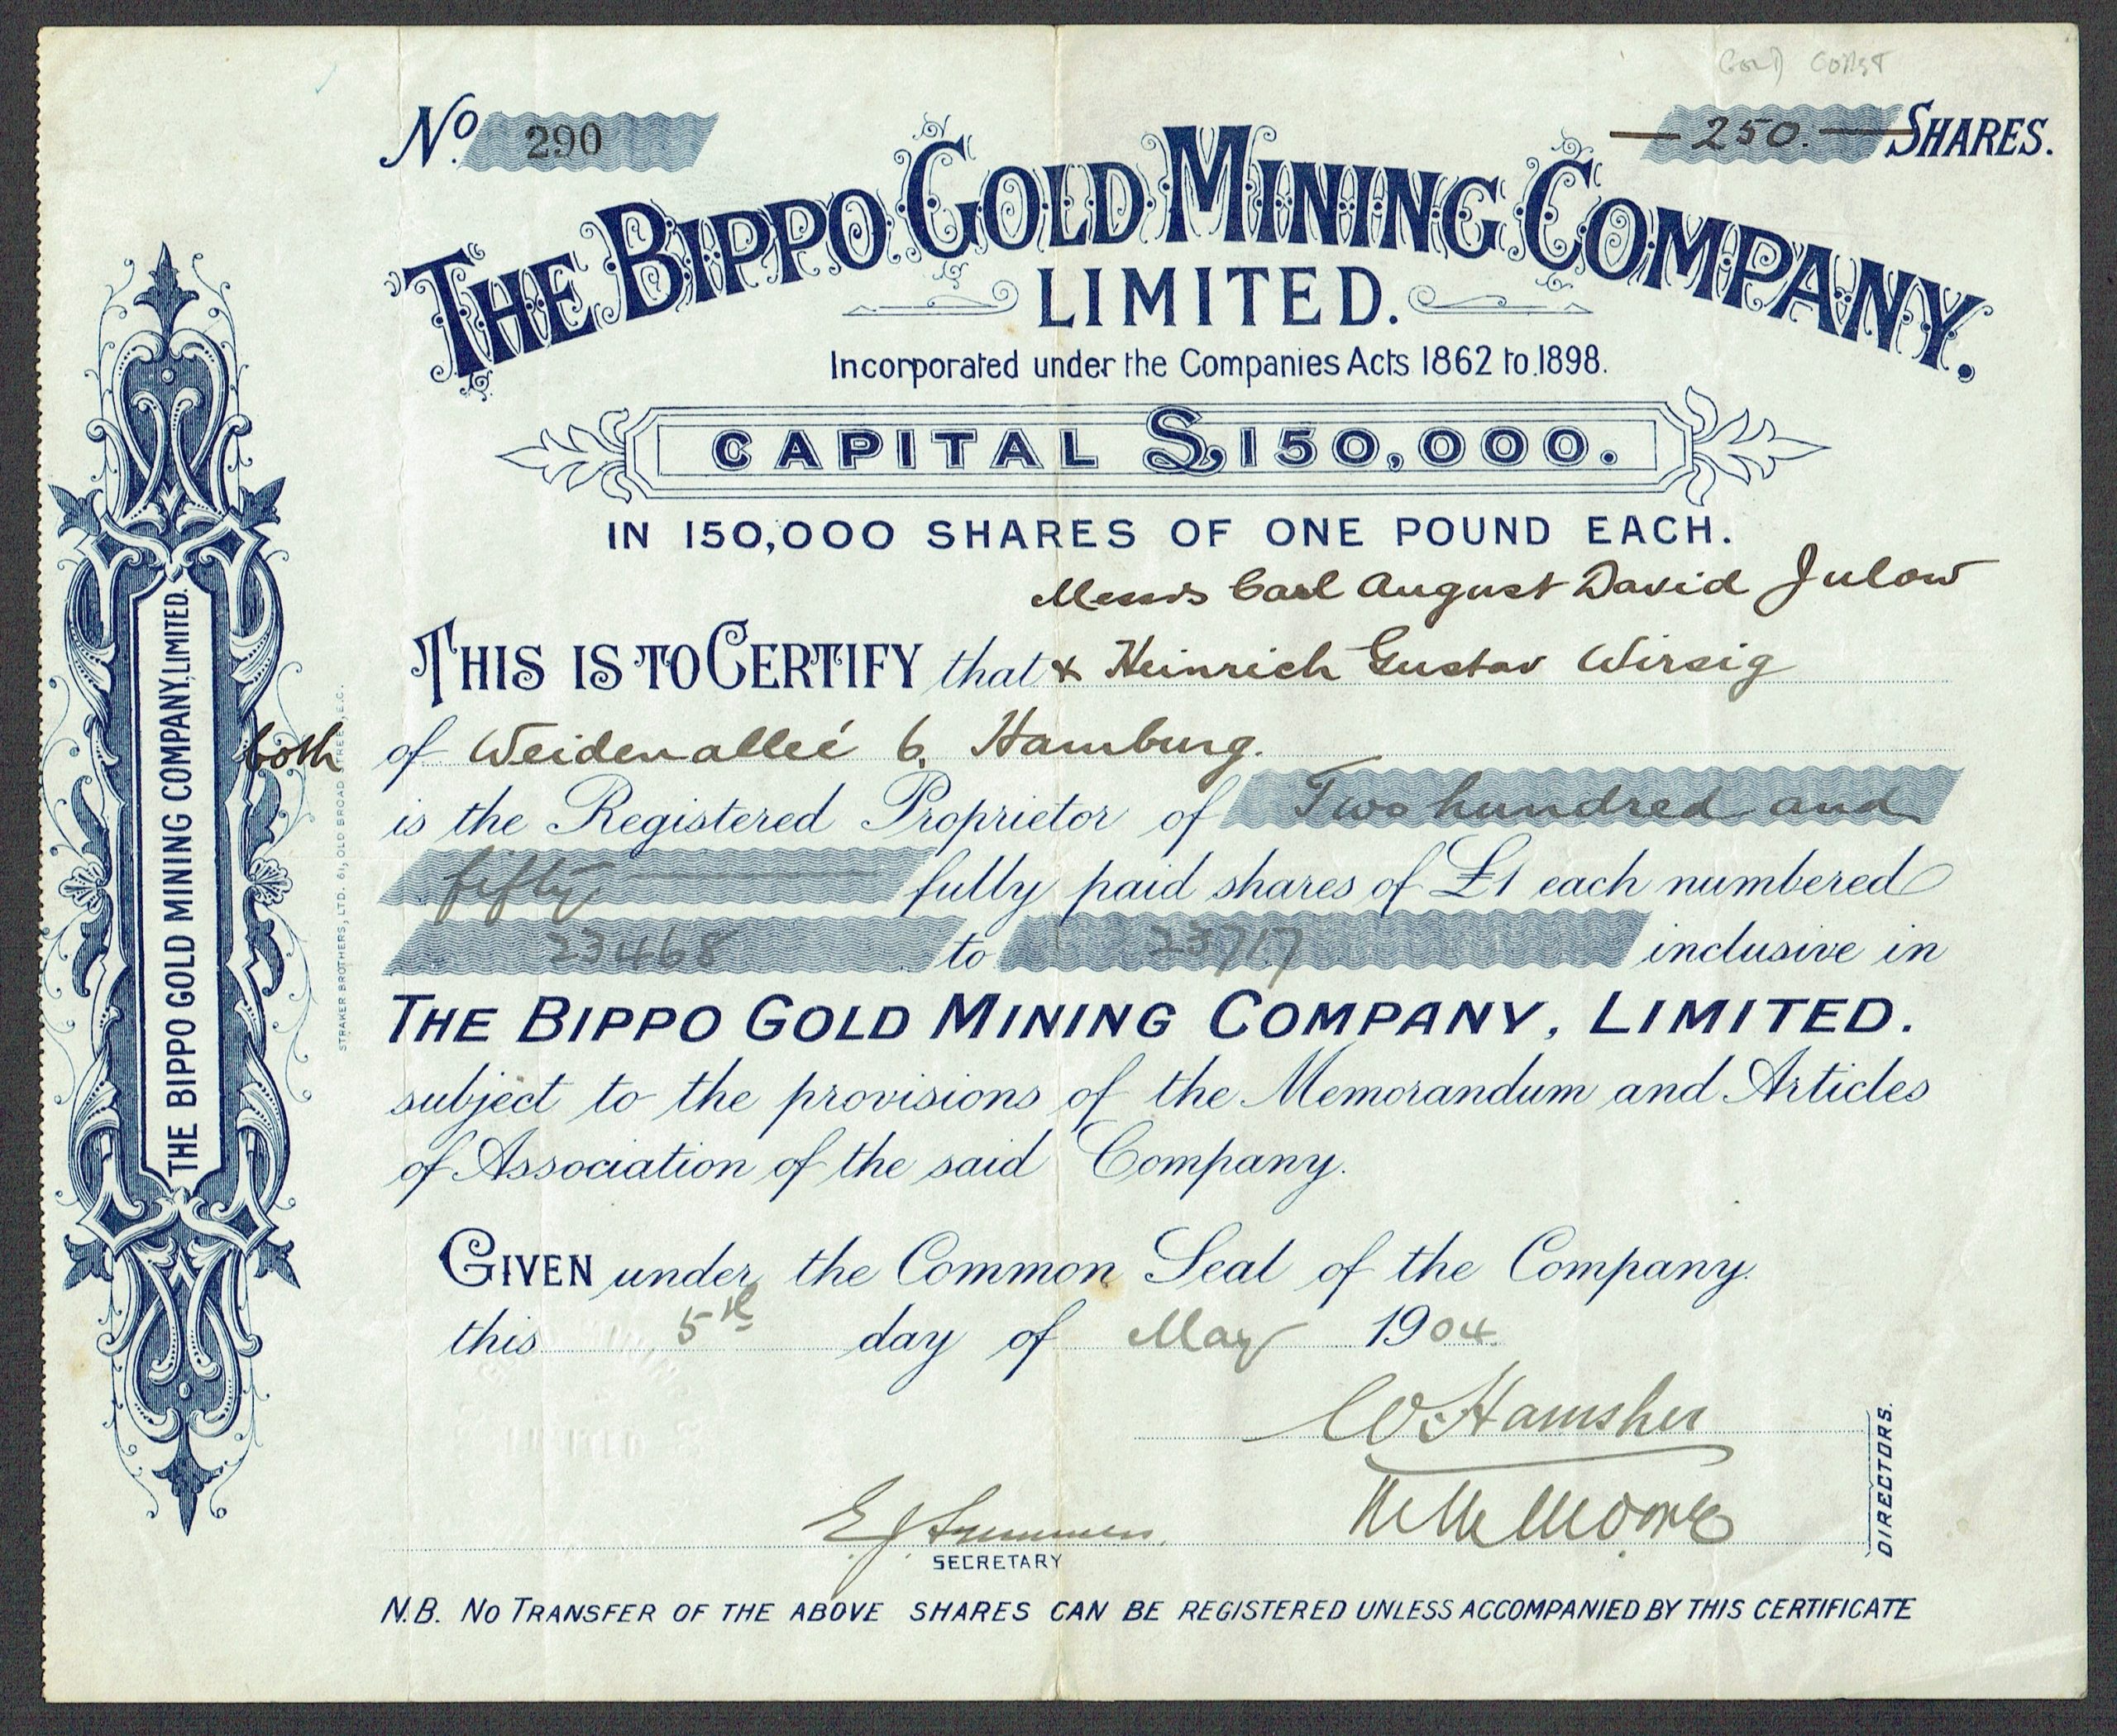 Gold Coast
No. 290
— 250. — SHARES.
THE BIPPO GOLD MINING COMPANY.
LIMITED.
Incorporated under the Companies Acts 1862 to 1898.
CAPITAL £150,000.
IN 150,000 SHARES OF ONE POUND EACH.
Messrs Carl August David Julow
THIS IS TO CERTIFY that & Heinrich Gustav Wirsig
both of Weidenalleé 6, Hamburg.
is the Registered Proprietor of Two hundred and
fifty — fully paid shares of £1 each numbered
23468 to 23717 inclusive in
THE BIPPO GOLD MINING COMPANY, LIMITED.
subject to the provisions of the Memorandum and Articles
of Association of the said Company.
GIVEN under the Common Seal of the Company.
this 5th day of May 1904
W. Hamsher
Moore
DIRECTORS.
E. J.
SECRETARY
N.B. NO TRANSFER OF THE ABOVE SHARES CAN BE REGISTERED UNLESS ACCOMPANIED BY THIS CERTIFICATE
THE BIPPO GOLD MINING COMPANY, LIMITED.
STRAKER BROTHERS, LTD. 61, OLD BROAD STREET, E.C.